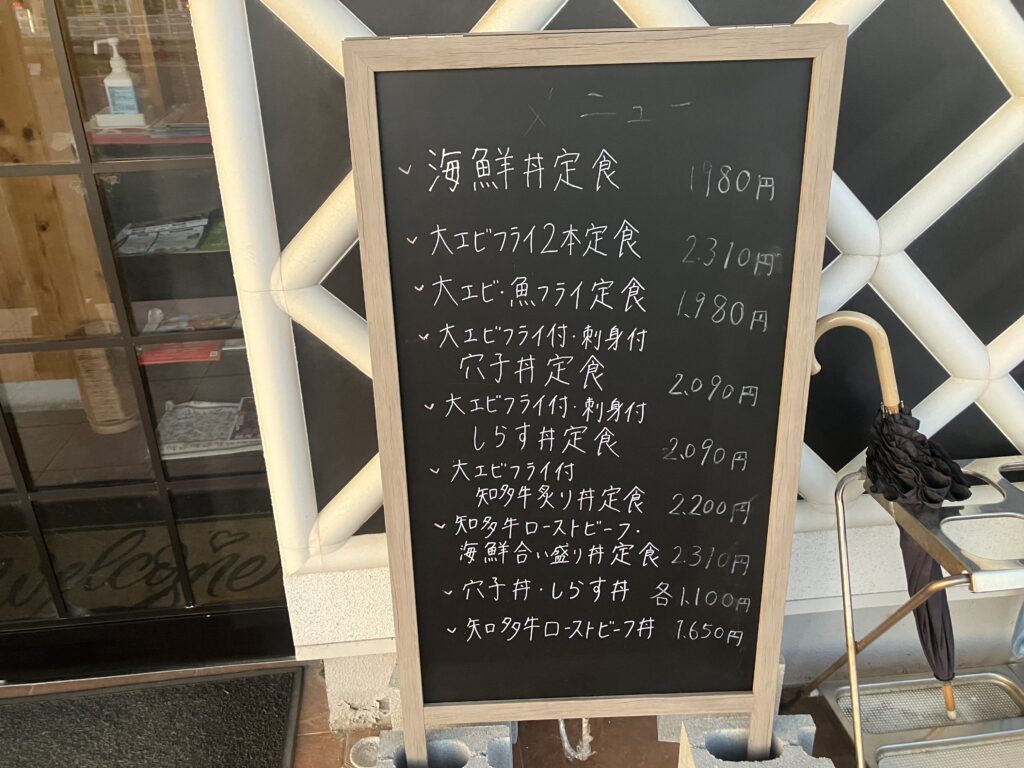 メニュー
海鮮丼定食 1980円
大エビフライ2本定食 2.310円
大エビ・魚フライ定食 1.980円
大エビフライ付・刺身付
穴子丼定食 2.090円
大エビフライ付・刺身付
しらす丼定食 2.090円
大エビフライ付
知多牛炙り丼定食 2.200円
知多牛ローストビーフ・
海鮮合い盛り丼定食 2.310円
穴子丼・しらす丼 各1.100円
知多牛ローストビーフ丼 1.650円
welcome